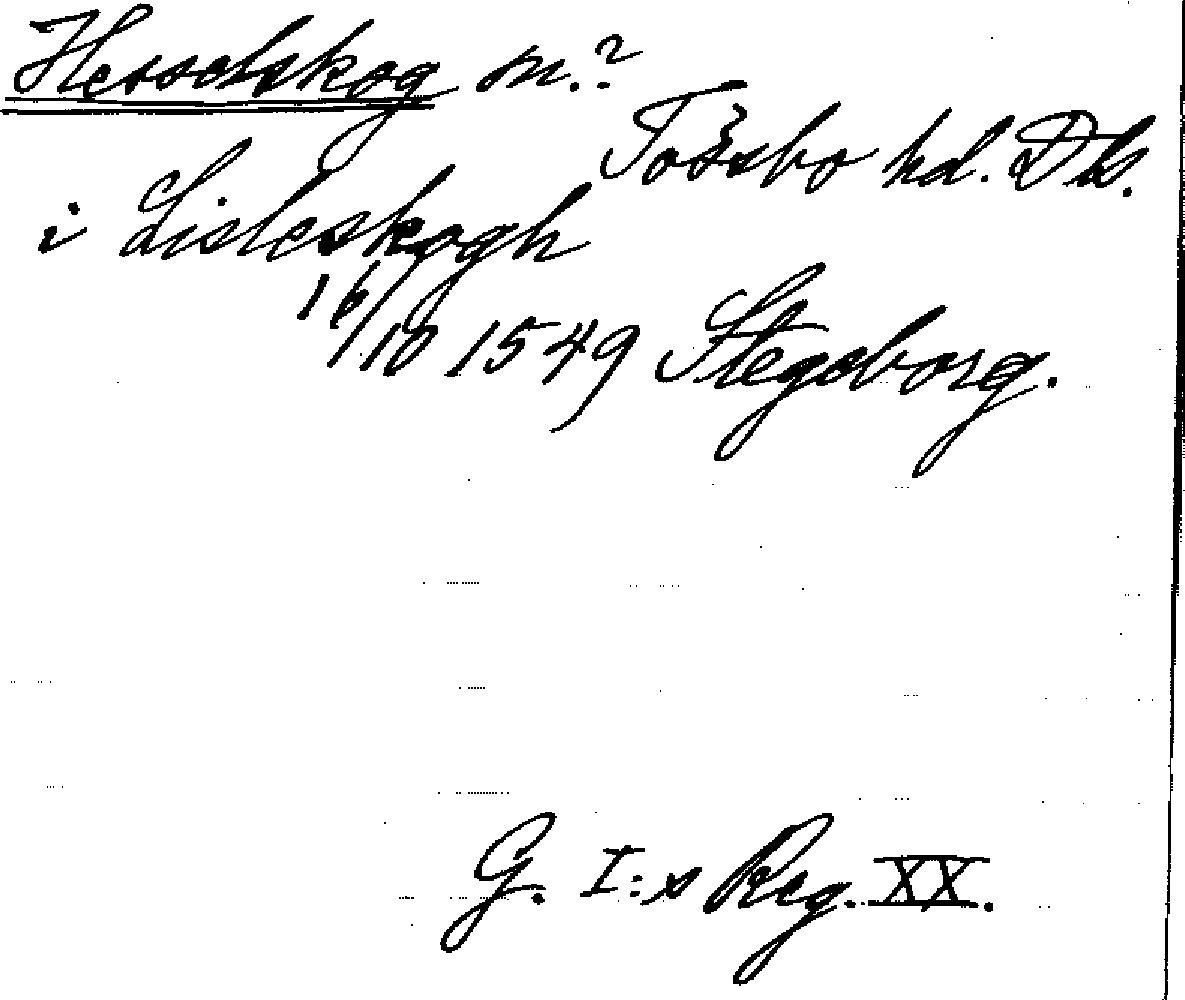 Hesselskog m.?
Tössbo hd. Dls.
i Lisleskogh
16/10 1549 Stegeborg.
G. I:s Reg. XX.